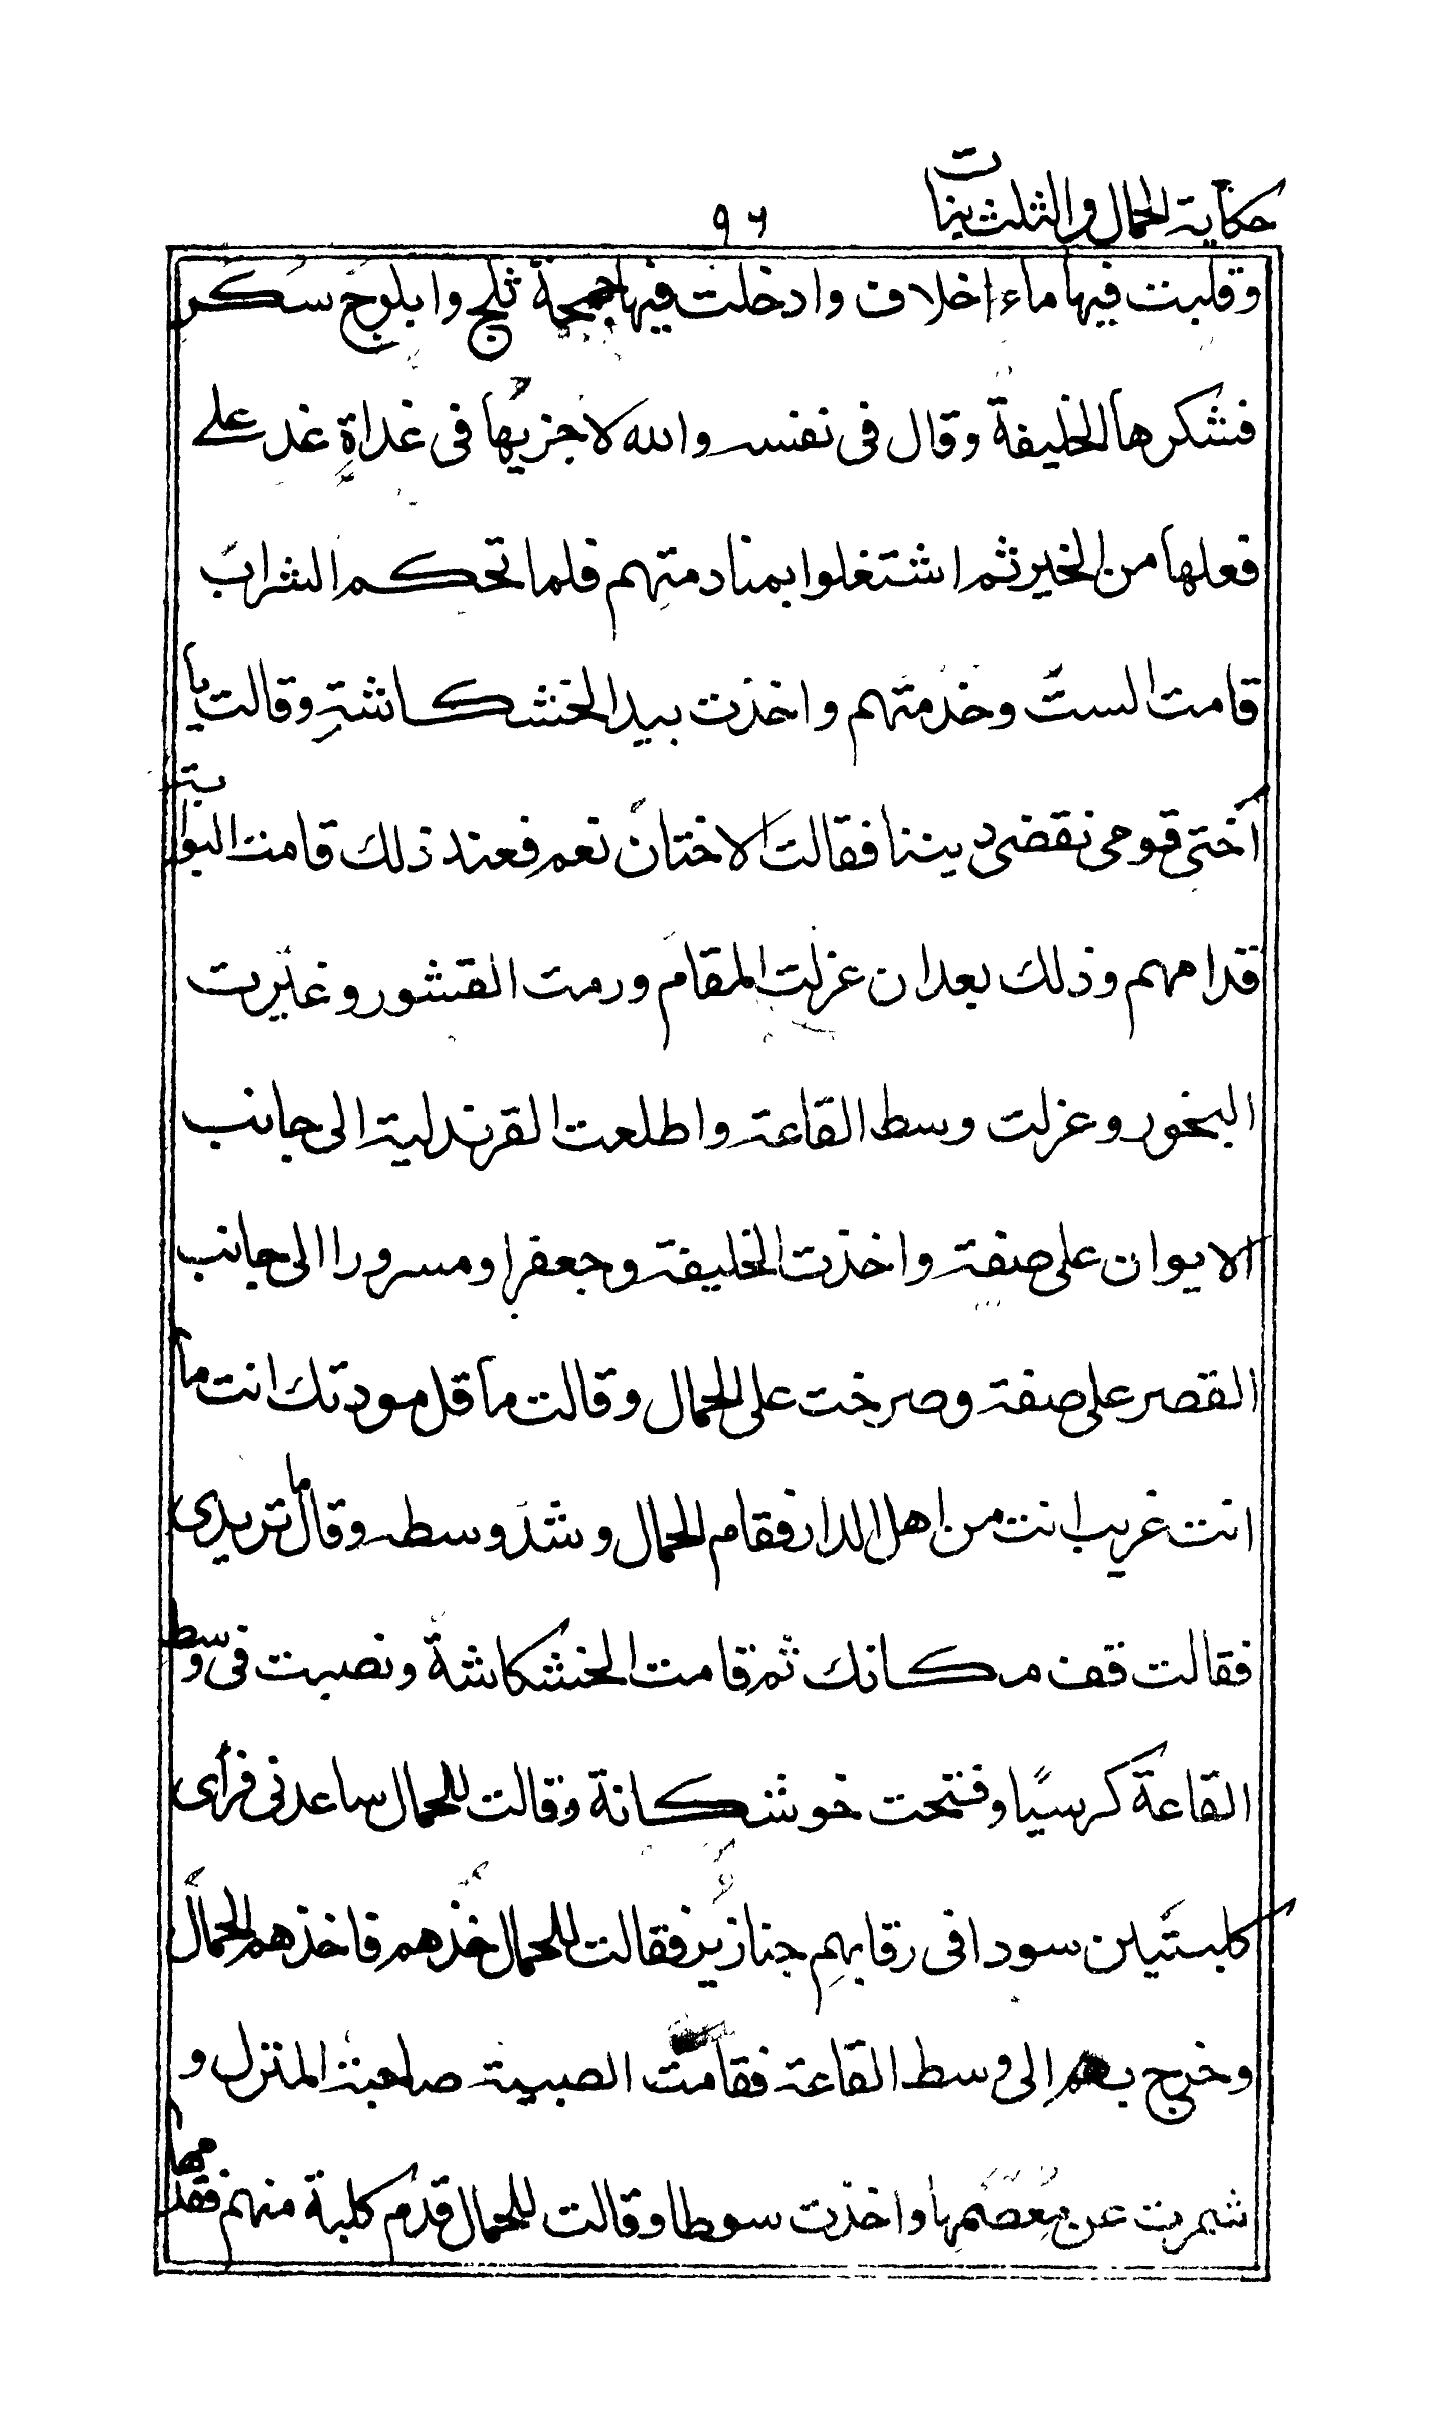 حكاية الحمال والثلث بنات ٩٦
وقلبت فيها ماء اخلاف وادخلت فيها جمجمة ثلج وابلوج سكر
فشكرها الخليفة وقال فى نفسه والله لاجزيها فى غداة غد على
فعلها من الخير ثم اشتغلوا بمنادمتهم فلما تحكم الشراب
قامت الست وخدمتهم واخذت بيد الخشكاشة وقالت يا
اختى قومى نقضى ديننا فقالت الاختان نعم فعند ذلك قامت البوابة
قدامهم وذلك بعد ان عزلت المقام ورمت القشور وغيرت
البخور وعزلت وسط القاعة واطلعت القرندلية الى جانب
الايوان على صفة واخذت الخليفة وجعفرا ومسرورا الى جانب
القصر على صفة وصرخت على الحمال وقالت ما قل مودتك انت ما
انت غريب انت من اهل الدار فقام الحمال وشد وسطه وقال ما تريدى
فقالت قف مكانك ثم قامت الخشكاشة ونصبت فى وسط
القاعة كرسيًا وفتحت خوشكانة وقالت للحمال ساعدنى فرأى
كلبتين سودا فى رقابهم جنازير فقالت للحمال خذهم فاخذهم الحمال
وخرج بهم الى وسط القاعة فقامت الصبية صاحبة المنزل و
شمرت عن معصمها واخذت سوطا وقالت للحمال قدم كلبة منهم فقدمها